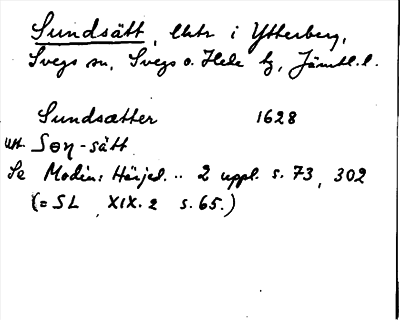 Sundsätt, lktr i Ytterberg,
Svegs sn, Svegs o. Hede tg, Jämtl. l.
Sundsætter 1628
utt. Sөŋ-sätt
Se Modin: Härjed. .. 2 uppl. s. 73, 302
(= SL XIX. 2 s. 65.)